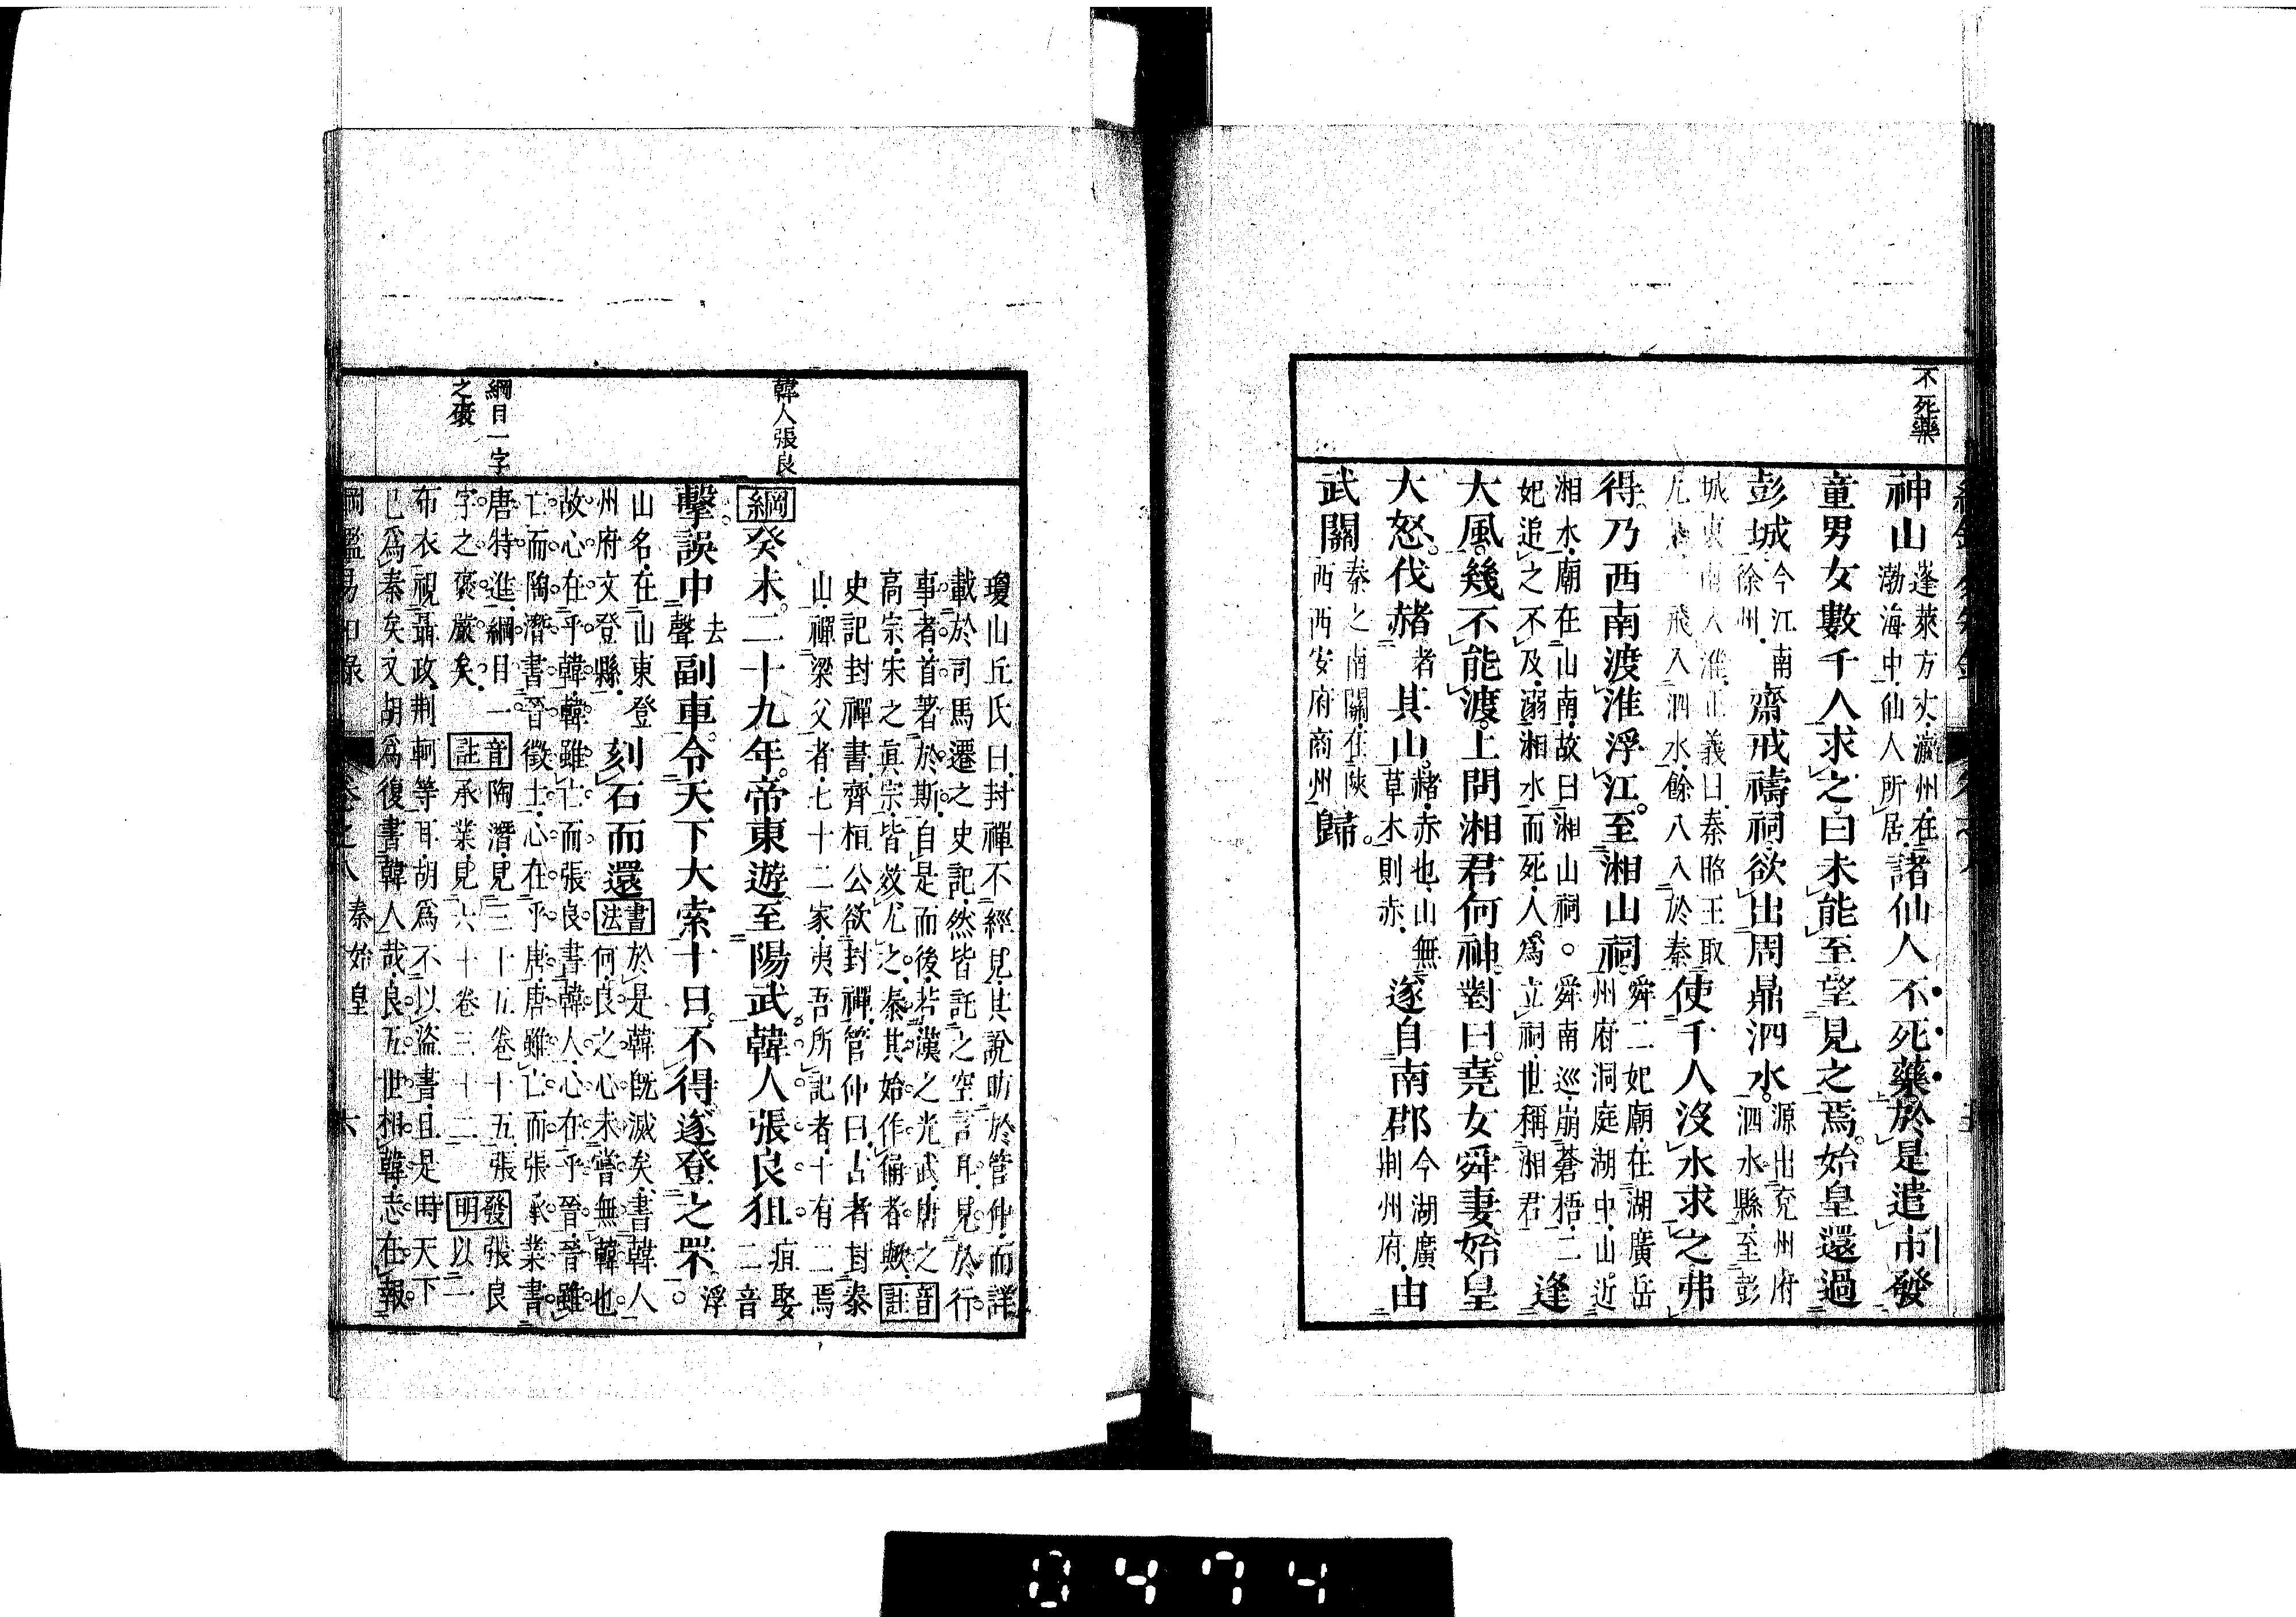 不死藥
神山蓬萊方丈瀛州在
渤海中仙人所居諸仙人不死藥於是遣市發
童男女數千人求之曰未能至望見之焉始皇還過
彭城今江南
徐州齋戒禱祠欲出周鼎泗水源出兗州府
泗水縣至彭
城東南入淮正義曰秦昭王取
九鼎一飛入泗水餘八入於秦使千人沒水求之弗
得乃西南渡淮浮江至湘山祠舜二妃廟在湖廣岳
州府洞庭湖中山近
湘水廟在山南故曰湘山祠○舜南巡崩蒼梧二
妃追之不及溺湘水而死人爲立祠世稱湘君逢
大風幾不能渡上問湘君何神對曰堯女舜妻始皇
大怒伐赭者其山赭赤也山無
草木則赤遂自南郡今湖廣
荆州府由
武關秦之南關在陝
西西安府商州歸
韓人張良
綱目一字
之褒
瓊山丘氏曰封禪不經見其說昉於管仲而詳
載於司馬遷之史記然皆託之空言耳見於行
事者首著於斯自是而後若漢之光武唐之
高宗宋之眞宗皆效尤之秦其始作俑者歟音註
史記封禪書齊桓公欲封禪管仲曰古者封泰
山禪梁父者七十二家夷吾所記者十有二焉
綱癸未二十九年帝東遊至陽武韓人張良狙疽娶
二音
擊誤中去
聲副車令天下大索十日不得遂登之罘浮
山名在山東登
州府文登縣刻石而還書法於是韓旣滅矣書韓人
何良之心未嘗無韓也
故心在乎韓韓雖亡而張良書韓人心在乎晉晉雖
亡而陶潛書晉徵士心在乎唐唐雖亡而張承業書
唐特進綱目一
字之褒嚴矣音註陶潛見三十五卷十五張
承業見六十卷三十二發明張良
以一
布衣視聶政荆軻等耳胡爲不以盜書且是時天下
已爲秦矣又胡爲復書韓人哉良五世相韓志在報
綱鑑易知錄 卷之八 秦始皇 六
0474